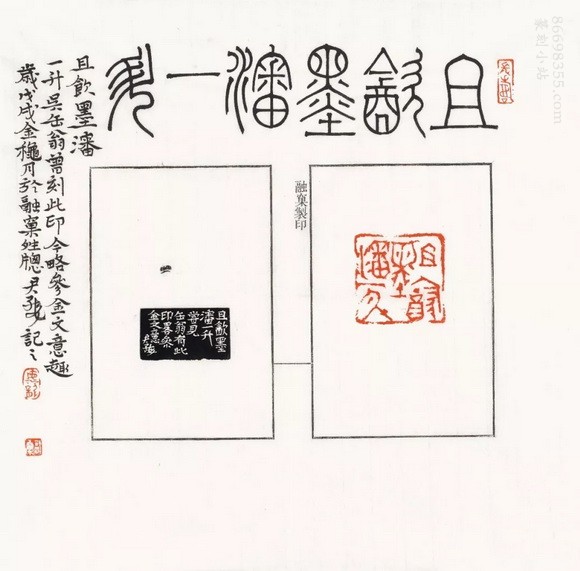 且飲墨瀋一升
且飲墨瀋
一升吳缶翁曾刻此印今略參金文意趣
歲戊戌金龝月於融稾姓牕尹海記之
融稾製印
且飲墨瀋
且飲墨
瀋一升
曾見
缶翁有此
印略參
金文意
86698355.com
篆刻小站